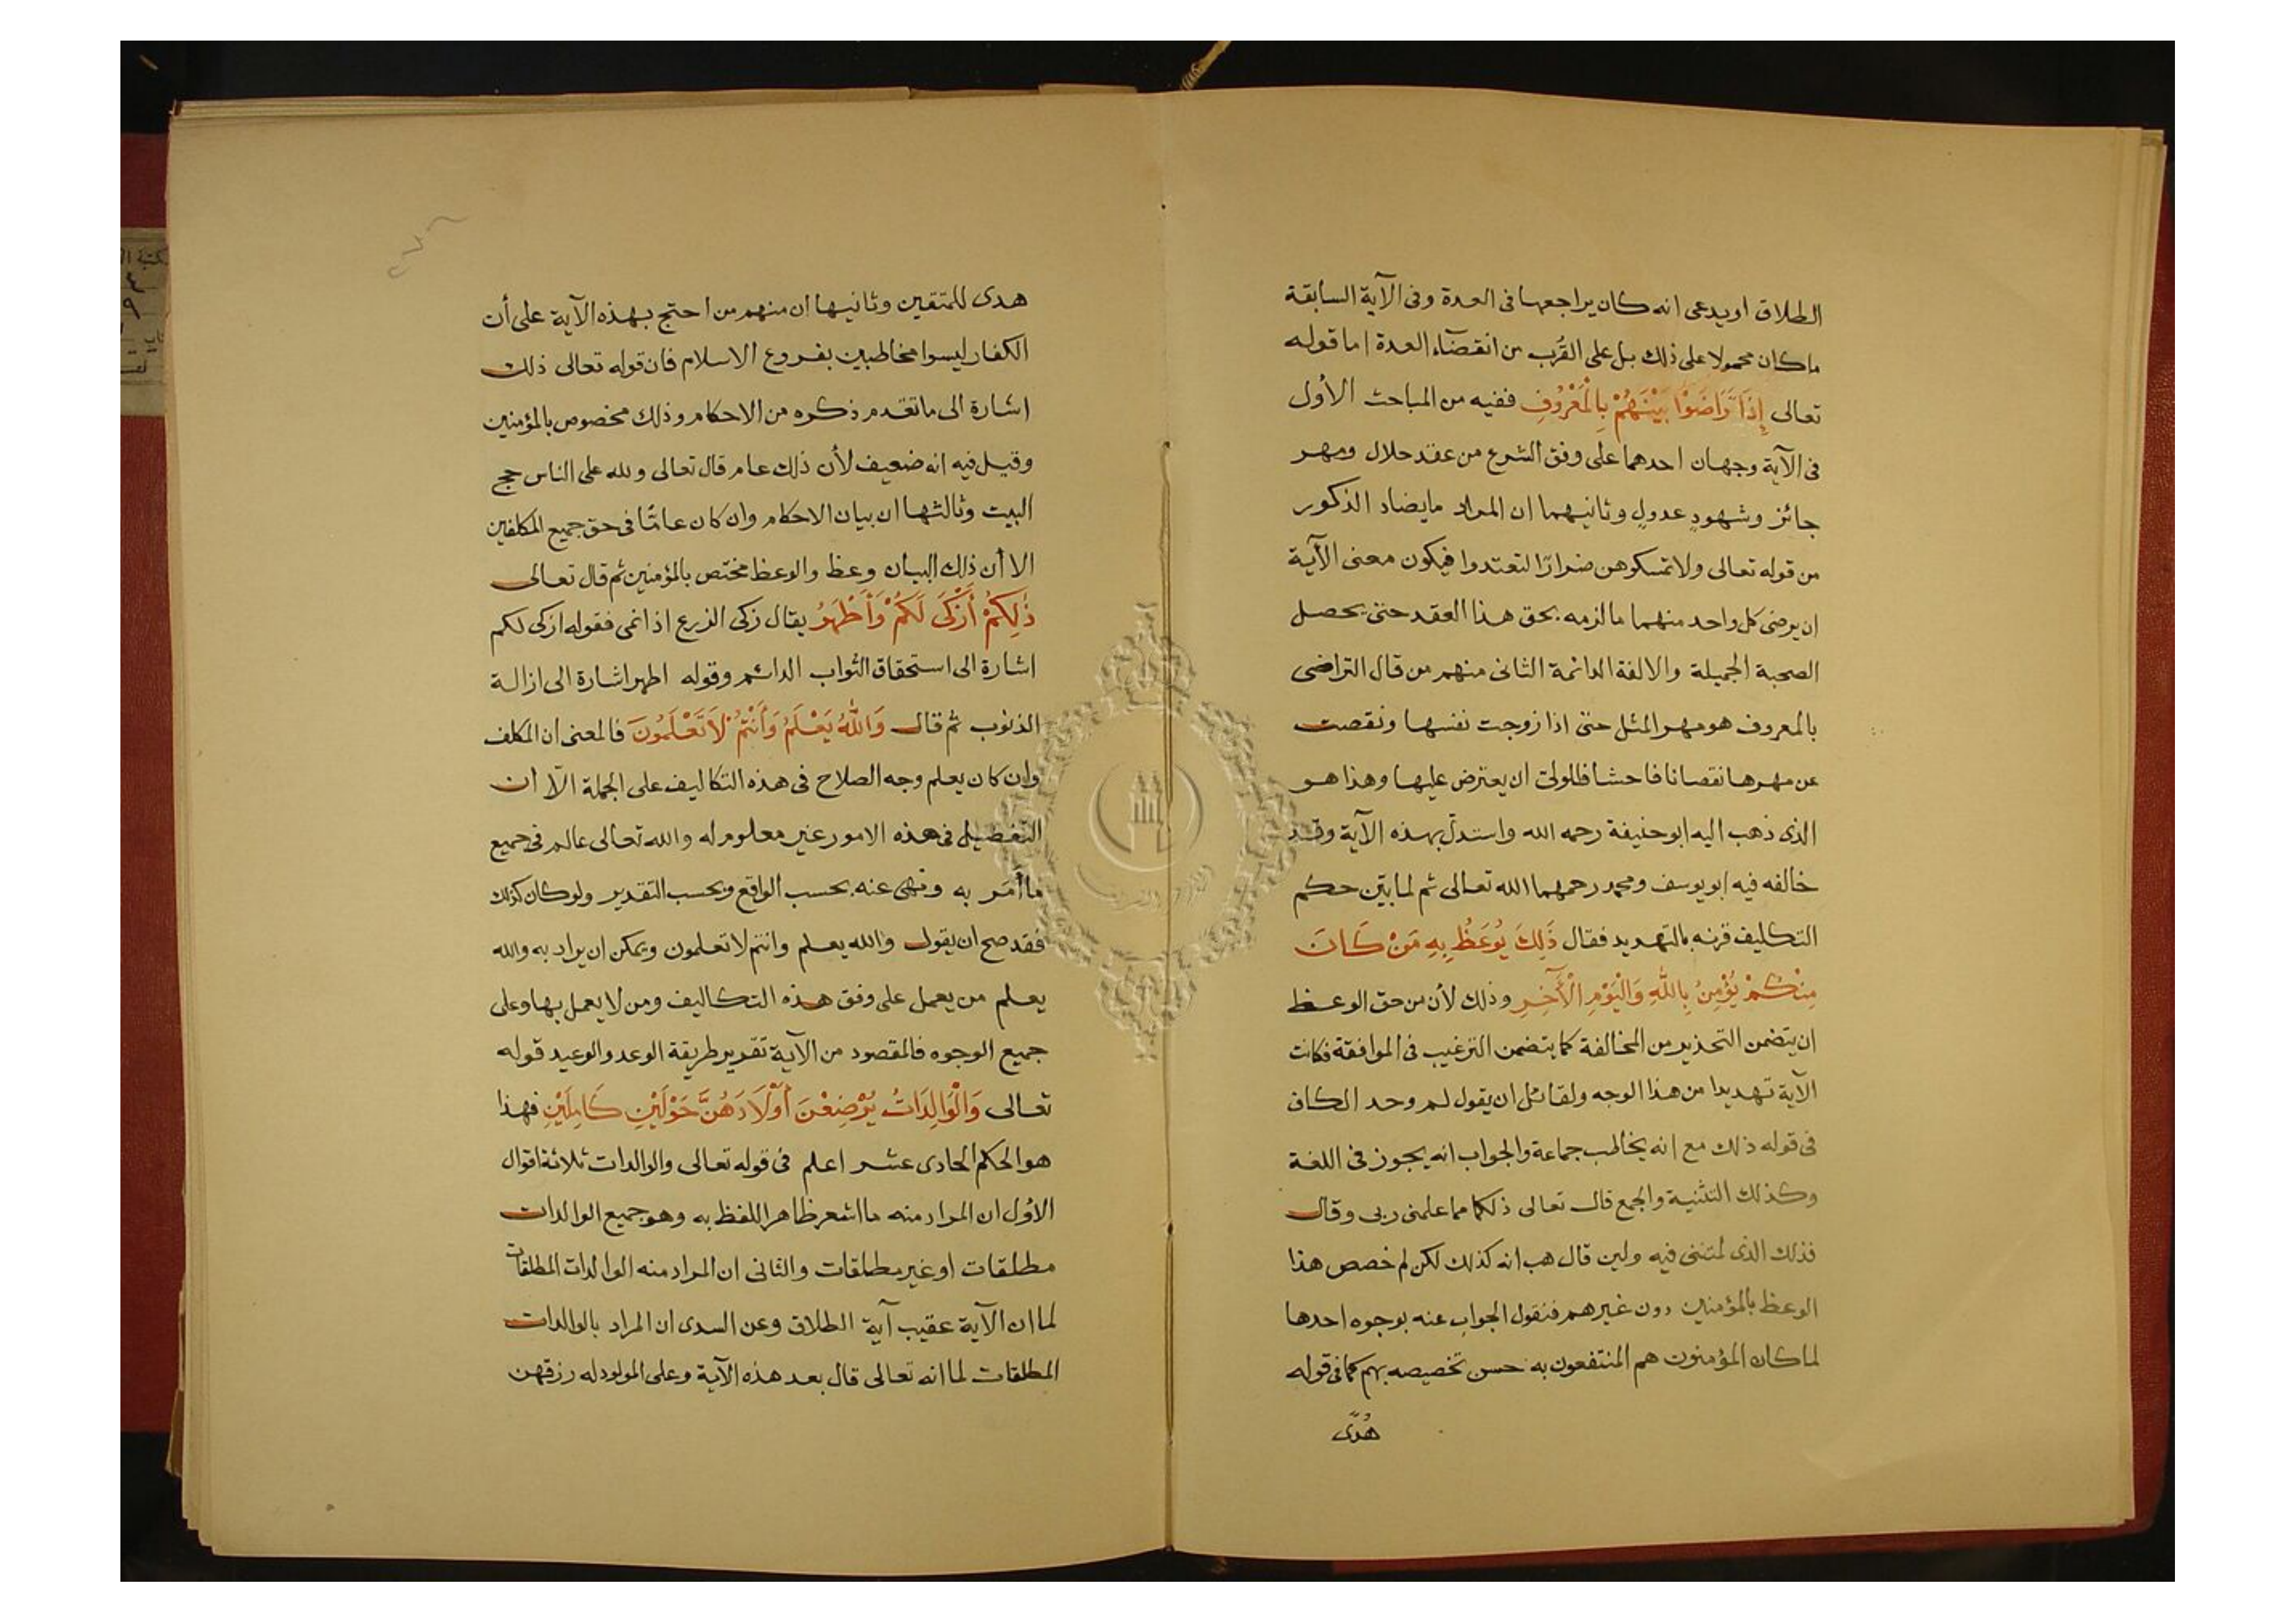 الطلاق او يدعى انه كان يراجعها فى العدة وفى الآية السابقة
ما كان محمولا على ذلك بل على القُرب من انقضآء العدة اما قوله
تعالى إِذَا تَرَاضَوْا بَيْنَهُمْ بِالْمَعْرُوفِ ففيه من المباحث الأول
فى الآية وجهان احدهما على وفق الشرع من عقد حلال ومهر
جائز وشهودٍ عدولٍ وثانيهما ان المراد ما يضاد الذكور
من قوله تعالى ولا تمسكوهن ضرارًا لتعتدوا فيكون معنى الآية
ان يرضى كل واحد منهما ما لزمه بحق هذا العقد حتى يحصل
الصحبة الجميلة والالفة الدائمة الثانى منهم من قال التراضى
بالمعروف هو مهر المثل حتى اذا زوجت نفسها ونقصت
عن مهرها نقصانا فاحشا فللولىّ ان يعترض عليها وهذا هو
الذى ذهب اليه ابو حنيفة رحمه الله واستدلّ بهذه الآية وقد
خالفه فيه ابو يوسف ومحمد رحمهما الله تعالى ثم لما بيّن حكم
التكليف قرنه بالتهديد فقال ذَلِكَ يُوعَظُ بِهِ مَنْ كَانَ
مِنْكُمْ يُؤْمِنُ بِاللَّهِ وَالْيَوْمِ الْآخِرِ وذلك لأن من حق الوعظ
ان يتضمن التحذير من المخالفة كما يتضمن الترغيب فى الموافقة فكانت
الآية تهديدا من هذا الوجه ولقائل ان يقول لم وحد الكاف
فى قوله ذلك مع انه يخاطب جماعة والجواب انه يجوز فى اللغة
وكذلك التثنية والجمع قال تعالى ذلكما مما علمنى ربى وقال
فذلك الذى لمتننى فيه ولين قال هب انه كذلك لكن لم خصص هذا
الوعظ بالمؤمنين دون غيرهم فنقول الجواب عنه بوجوه احدها
لما كان المؤمنون هم المنتفعون به حسن تخصيصه بهم كما فى قوله
هُدًى
هدى للمتقين وثانيها ان منهم من احتج بهذه الآية على أن
الكفار ليسوا مخاطبين بفروع الاسلام فان قوله تعالى ذلك
اشارة الى ما تقدم ذكره من الاحكام وذلك مخصوص بالمؤمنين
وقيل فيه انه ضعيف لأن ذلك عام قال تعالى ولله على الناس حج
البيت وثالثها ان بيان الاحكام وان كان عامًّا فى حق جميع المكلفين
الا أن ذلك البيان وعظ والوعظ مختص بالمؤمنين ثم قال تعالى
ذَٰلِكُمْ أَزْكَى لَكُمْ وَأَطْهَرُ يقال زكى الزرع اذا نمى فقوله ازكى لكم
اشارة الى استحقاق الثواب الدائم وقوله اطهر اشارة الى ازالة
الذنوب ثم قال وَاللَّهُ يَعْلَمُ وَأَنْتُمْ لَا تَعْلَمُونَ فالمعنى ان المكلف
وان كان يعلم وجه الصلاح فى هذه التكاليف على الجملة الّا ان
التفصيل فى هذه الامور غير معلوم له والله تعالى عالم فى جميع
ما أَمَر به ونهى عنه بحسب الواقع وبحسب التقدير ولو كان كذلك
فقد صح ان يقول والله يعلم وانتم لا تعلمون ويمكن ان يراد به والله
يعلم من يعمل على وفق هذه التكاليف ومن لا يعمل بها وعلى
جميع الوجوه فالمقصود من الآية تقدير طريقة الوعد والوعيد قوله
تعالى وَالْوَالِدَاتُ يُرْضِعْنَ أَوْلَادَهُنَّ حَوْلَيْنِ كَامِلَيْنِ فهذا
هو الحكم الحادى عشر اعلم فى قوله تعالى والوالدات ثلاثة اقوال
الأول ان المراد منه ما اشعر ظاهر اللفظ به وهو جميع الوالدات
مطلقات او غير مطلقات والثانى ان المراد منه الوالدات المطلقات
لما ان الآية عقيب آية الطلاق وعن السدى ان المراد بالوالدات
المطلقات لما انه تعالى قال بعد هذه الآية وعلى المولود له رزقهن